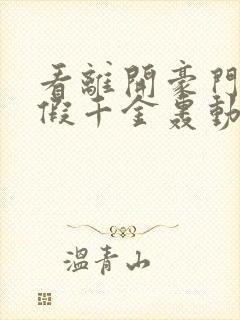 看離開豪門
假千金轟動
溫青山